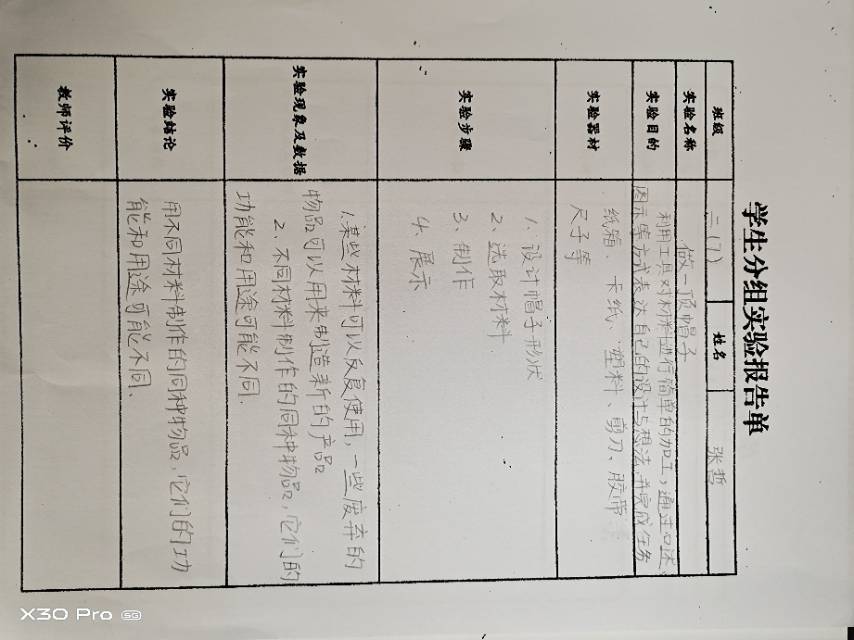 学生分组实验报告单
班级 三(7) 姓名 张哲
实验名称 做一顶帽子
实验目的 利用工具对材料进行简单的加工,通过口述、
图示等方式表达自己的设计与想法,并完成任务
实验器材 纸箱、卡纸、塑料、剪刀、胶带
尺子等
实验步骤
1、设计帽子形状
2、选取材料
3、制作
4、展示
实验现象及数据
1、某些材料可以反复使用,一些废弃的
物品可以用来制造新的产品
2、不同材料制作的同种物品,它们的
功能和用途可能不同.
实验结论
用不同材料制作的同种物品,它们的功
能和用途可能不同、
教师评价
X30 Pro 5G